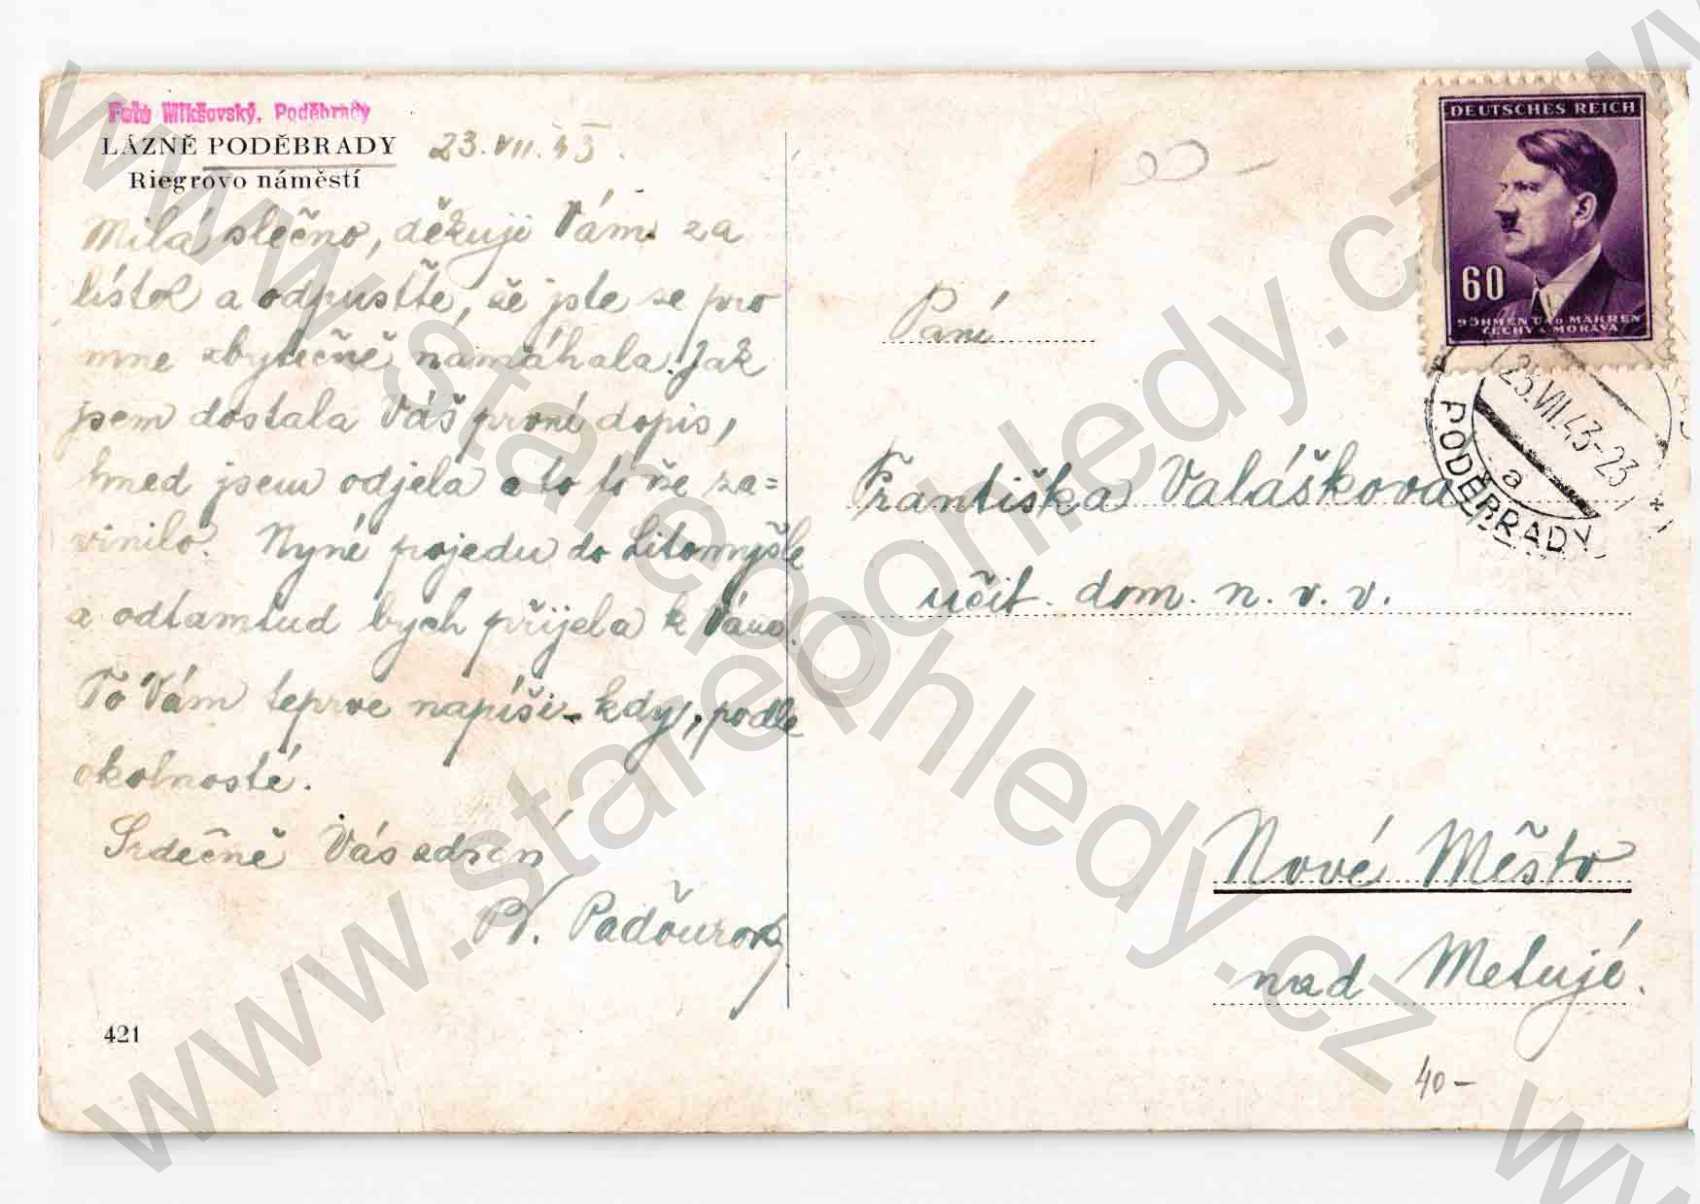 Foto Mikšovský, Poděbrady
LÁZNĚ PODĚBRADY
Riegrovo náměstí
23.VII.43.
Milá slečno, děkuji Vám za
lístek a odpusťte, že jste se pro
mne zbytečně namáhala. Jak
jsem dostala Váš první dopis,
hned jsem odjela a to to vše za=
vinilo. Nyní pojedu do Litomyšle
a odtamtud bych přijela k Vám.
To Vám teprve napíši - kdy, podle
okolností.
Srdečně Vás zdraví
Paďourová
421
DEUTSCHES REICH
60
BÖHMEN UND MÄHREN
ČECHY A MORAVA
23.VII.43-23
a
PODĚBRADY
Paní
Františka Valášková,
učit. dom. n. v. v.
Nové Město
nad Metují.
40-
www.starepohledy.cz
www.starepohledy.cz